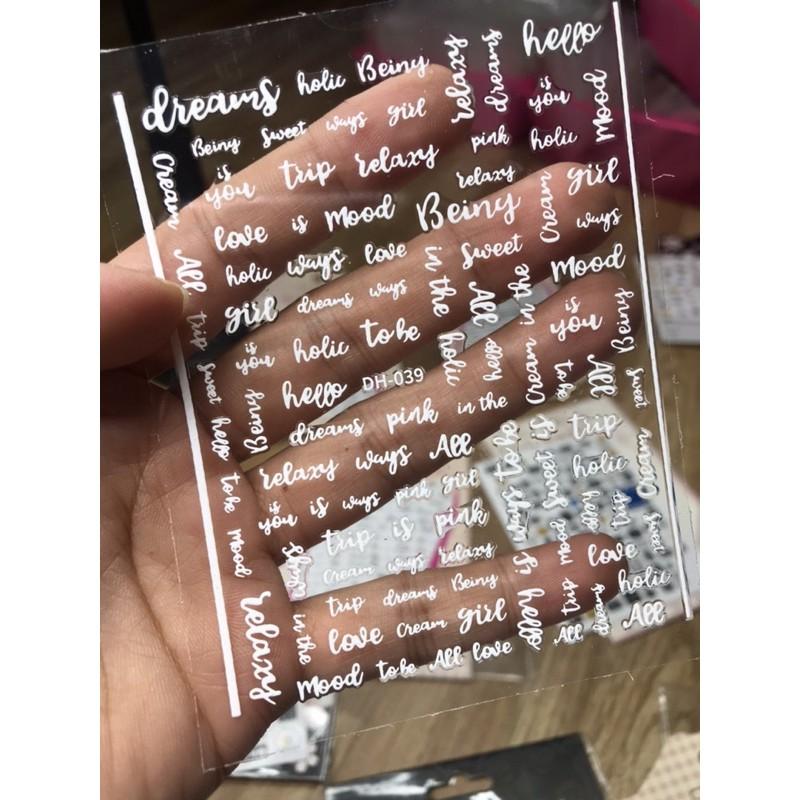 dreams holic Being relaxy dreams hello
Being Sweet ways girl is you Mood
Cream is you trip relaxy pink holic
relaxy
love is Mood Being Cream girl
All holic ways love in the Sweet ways
girl dreams ways All in the Mood
trip is you holic to be is you Being
hello DH-039 holic hello Cream to be All
Sweet Being dreams pink in the sweet
hello relaxy ways All ways to be is trip
to be is you is ways pink girl Sweet holic Cream
Mood ways trip is pink hello trip
Cream ways relaxy is Mood love sweet
relaxy in the trip dreams Being hello trip holic
love Cream girl All dreams All
Mood to be All love